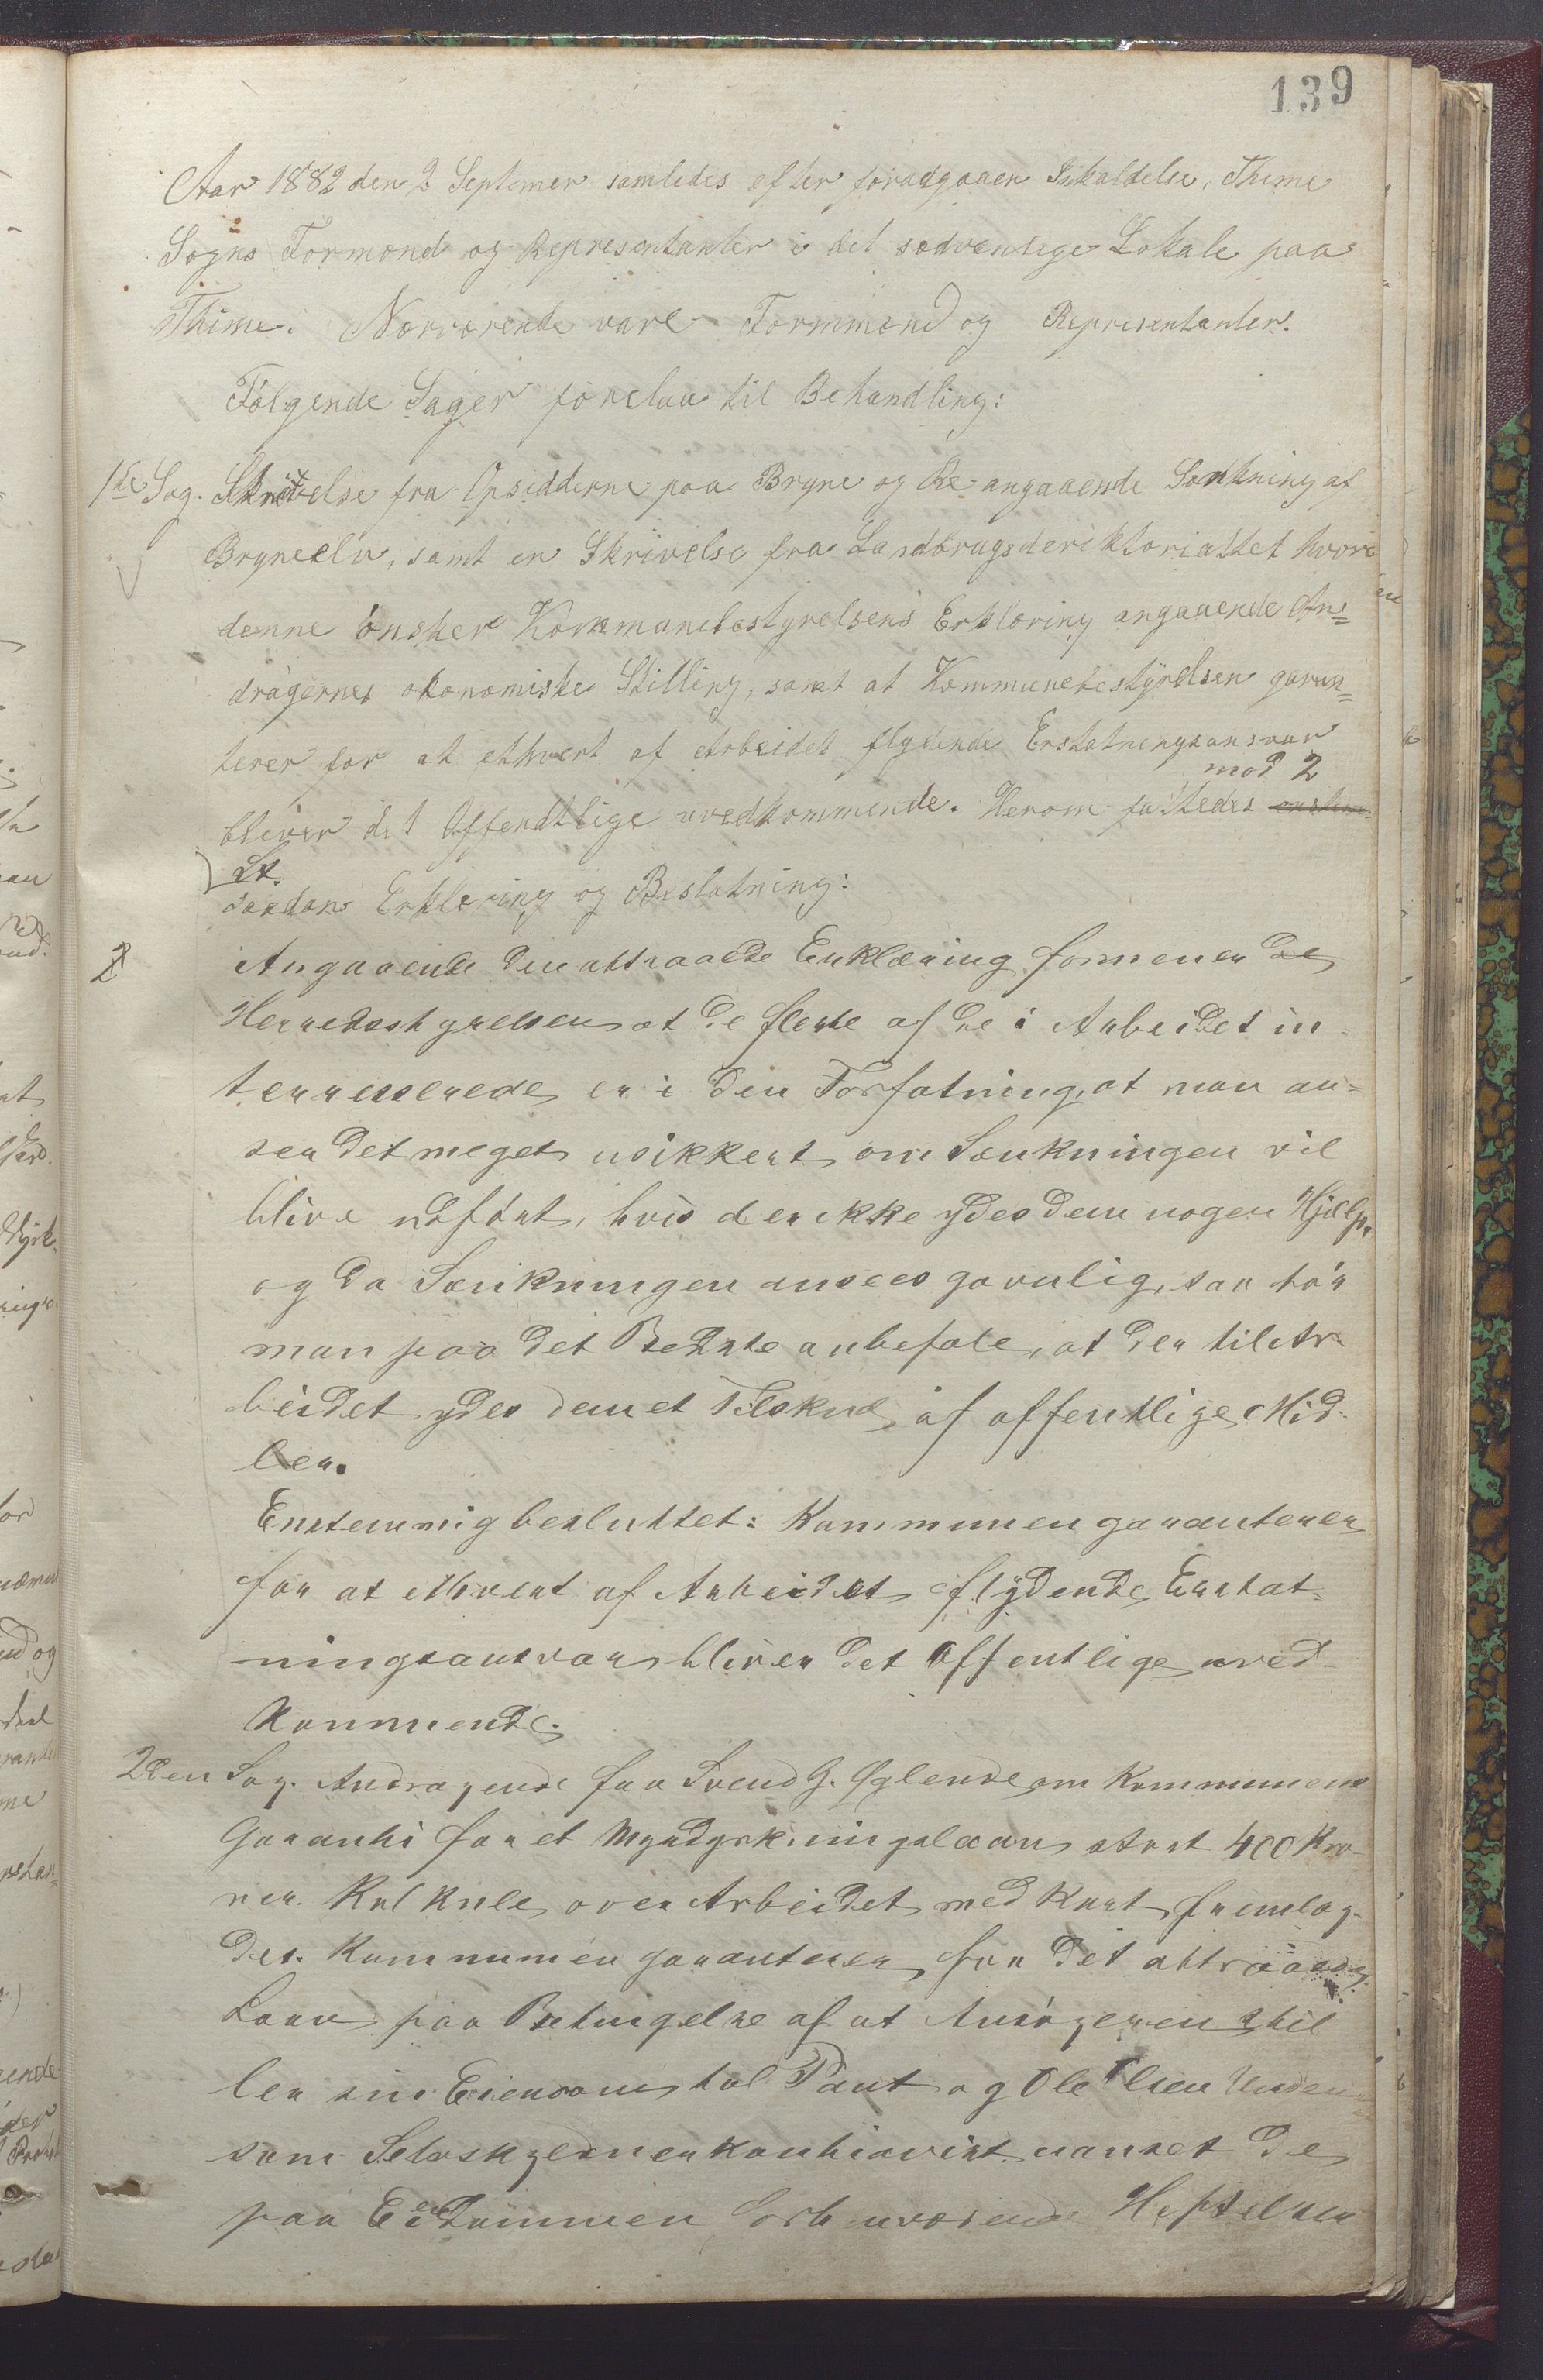 139
Aar 1882 den 2 Septemer samledes efter foradgaaen Inkaldelse, Thime
Sogns Formænd og Repræsentanter i det sædvenlige Lokale paa
Thime. Nærværende vare Formmænd og Represintanter.
Følgende Sager forelaa til Behandling:
1ste Sag. Skrivelse fra Opsidderne paa Bryne og Re angaaende Sænkning af
Bryneelv, samt en Skrivelse fra Landbrugsderiktoriattet hvori
denne ønsker Kommunebestyrelsens Erklæring angaaende An=
dragernes økonomiske Stilling, samt at Kommunebestyrelsen garan=
terer for at ethvert af Arbeidet flydende Erstatningsansvar
mod 2
bliver det Offendtlige uvedkommende. Herom fattedes
St.
saadan Erklæring og Beslutning:
2
Angaaende den attraaede Erklæring formener de
Herredsstyrelsen at de fleste af de i Arbeidet in-
terresserede er i den Forfatning, at man an=
ser det meget usikkert om Sænkningen vil
blive udført, hvis der ikke ydes dem nogen Hjælp,
og da Sænkningen ansees gavnlig, saa tør
man paa det Bedste anbefale, at der til Ar-
beidet ydes dem et Tilskud af offentlige Mid-
ler.
Enstemmig besluttet: Kommunen garanterer
for at ethvert af Arbeidet flydende Erstat=
ningsansvar bliver det Offentlige uved-
kommende.
2den Sag. Andragende fra Svend G. Øglend om Kommunens
Garanti for et Myrdyrkningslaan stort 400 Kro-
ner. Kalkule over Arbeidet med Kart fremlag-
des. Kommunen garanterer for det attraaede
Laan paa Betingelse af at Ansøgeren stil
ler sin Eiendom tål Pant og Ole Olsen
som Selvskyldnerkautionist uanset de
paa Eiendommen forhenværende Heftelser